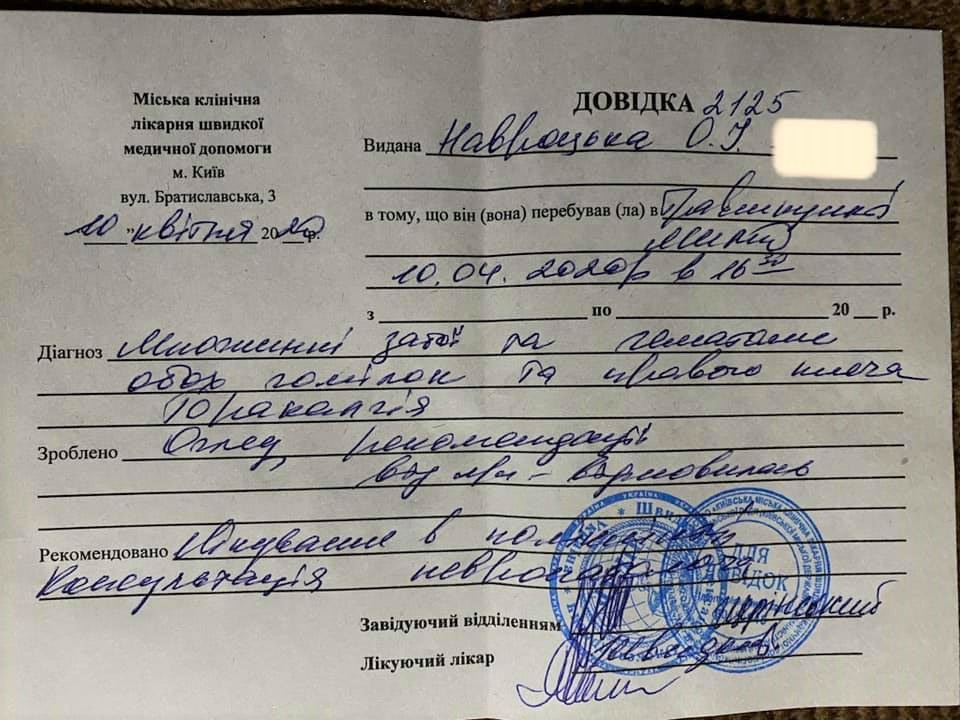 Міська клінічна
лікарня швидкої
медичної допомоги
м. Київ
вул. Братиславська, 3
10 " квітня 2020 р.
ДОВІДКА 2125
Видана Навроцька О.І.
в тому, що він (вона) перебував (ла) в
10.04.2020р в 16 30
з по 20 р.
Діагноз Множинні забої та гематоми
обох гомілок та правого плеча
Торакалгія
Зроблено Огляд, рекомендації
від - відмовилась
Рекомендовано Лікування в поліклініці
Консультація
Завідуючий відділенням
Лікуючий лікар
УКРАЇНА
ДЛЯ
ДОВІДОК